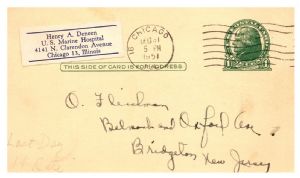 Henry A. Deneen
U.S. Marine Hospital
4141 N. Clarendon Avenue
Chicago 13, Illinois
CHICAGO
5 PM
1951
THIS SIDE OF CARD IS FOR ADDRESS
O. Fleishman
Belmont and Oxford Ave
Bridgeton New Jersey
Last Day
1¢ Rate